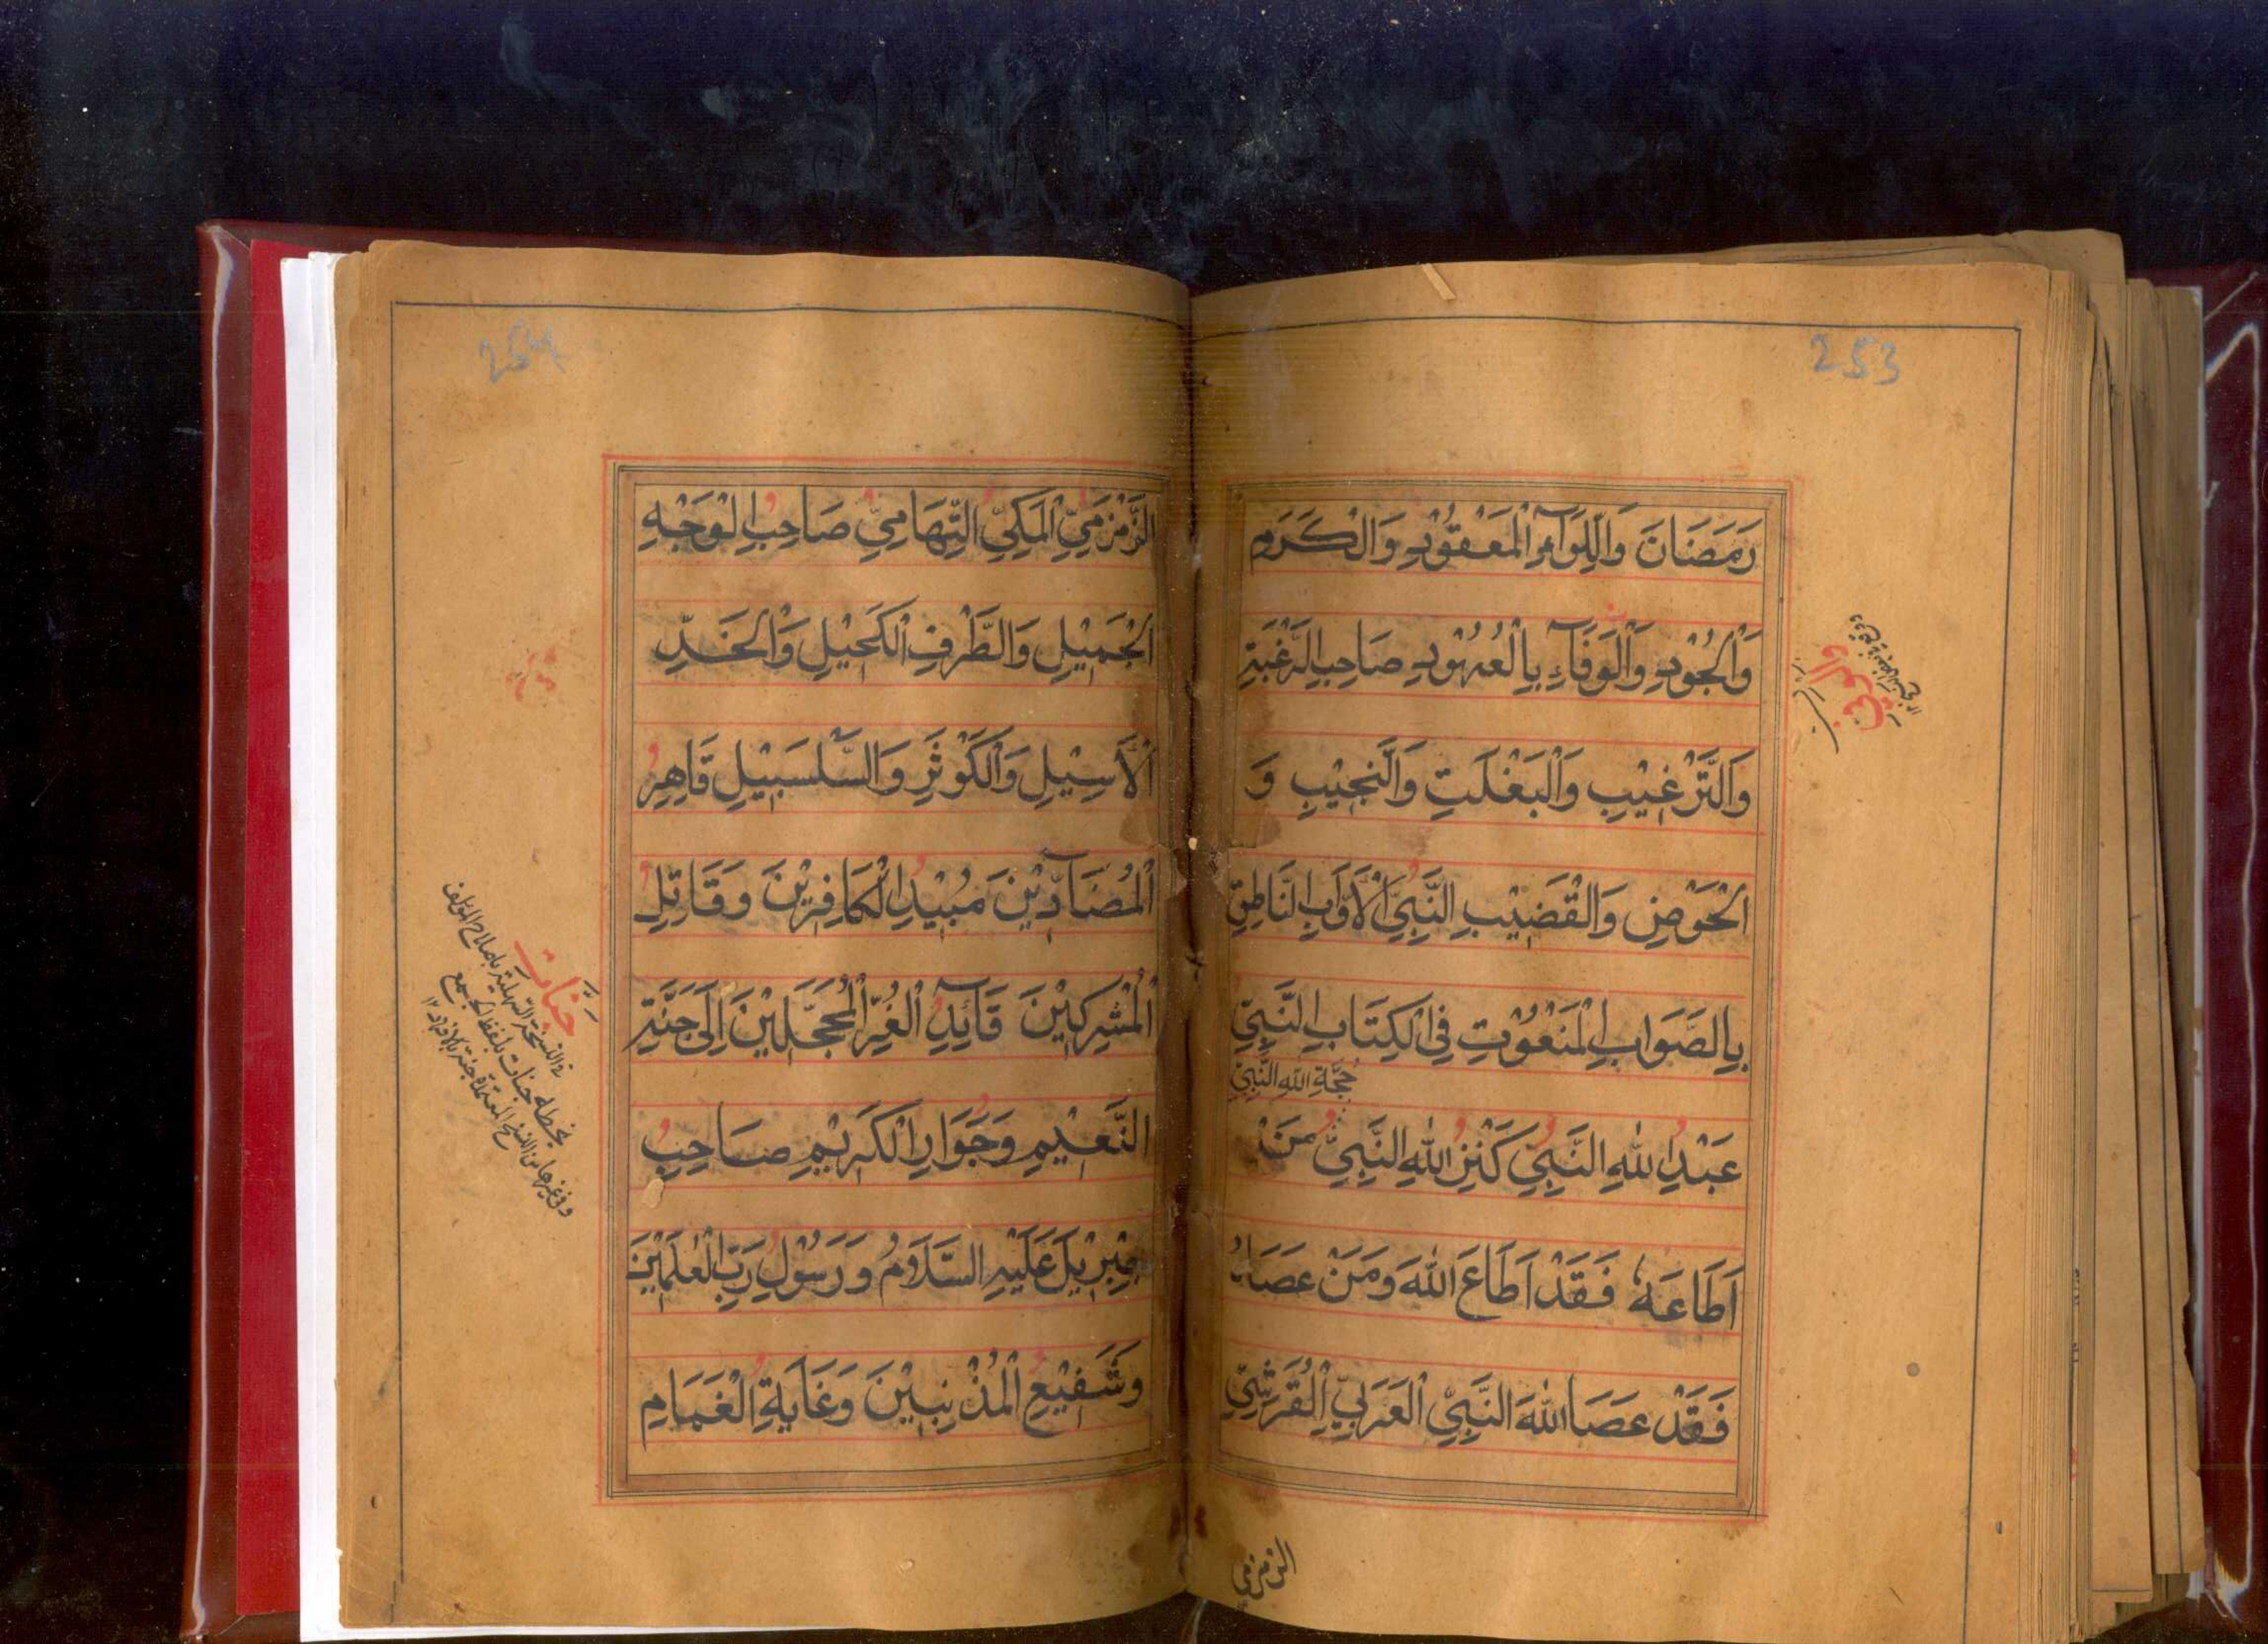 253
رَمَضَانَ وَاللِّوَآءِ الْمَعْقُوْدِ وَالْكَرَمِ
وَالْجُوْدِ وَالْوَفَآءِ بِالْعُهُوْدِ صَاحِبِ الرَّغْبَةِ
وَالتَّرْغِيْبِ وَالْبَغْلَتِ وَالنَّجِيْبِ وَ
الْحَوْضِ وَالْقَضِيْبِ النَّبِيِّ الْاَوَّابِ النَّاطِقِ
بِالصَّوَابِ الْمَنْعُوْتِ فِي الْكِتَابِ النَّبِيِّ
حُجَّةِ اللهِ النَّبِيِّ
عَبْدِ اللهِ النَّبِيِّ كَنْزِ اللهِ النَّبِيِّ مَنْ
اَطَاعَهٗ فَقَدْ اَطَاعَ اللهَ وَمَنْ عَصَاهُ
فَقَدْ عَصَا اللهَ النَّبِيِّ الْعَرَبِيِّ الْقُرَشِيِّ
الزمزمي
254
الزَّمْزَمِيِّ الْمَكِّيِّ التِّهَامِيِّ صَاحِبِ الْوَجْهِ
الْجَمِيْلِ وَالطَّرْفِ الْكَحِيْلِ وَالْخَدِّ
الْاَسِيْلِ وَالْكَوْثَرِ وَالسَّلْسَبِيْلِ قَاهِرِ
الْمُضَآدِّيْنَ مُبِيْدِ الْكَافِرِيْنَ وَقَاتِلِ
الْمُشْرِكِيْنَ قَآئِدِ الْغُرِّ الْمُحَجَّلِيْنَ اِلٰى جَنَّةِ
النَّعِيْمِ وَجَوَارِ الْكَرِيْمِ صَاحِبِ
جِبْرِيْلَ عَلَيْهِ السَّلَامُ وَرَسُوْلِ رَبِّ الْعٰلَمِيْنَ
وَشَفِيْعِ الْمُذْنِبِيْنَ وَغَايَةِ الْغَمَامِ
جَنَّات
في النسخة السهلية باصلاح المؤلف
بخطه جنات بلفظ الجمع
وفي غيرها من النسخ المعتمدة جنة بالافراد ١٢